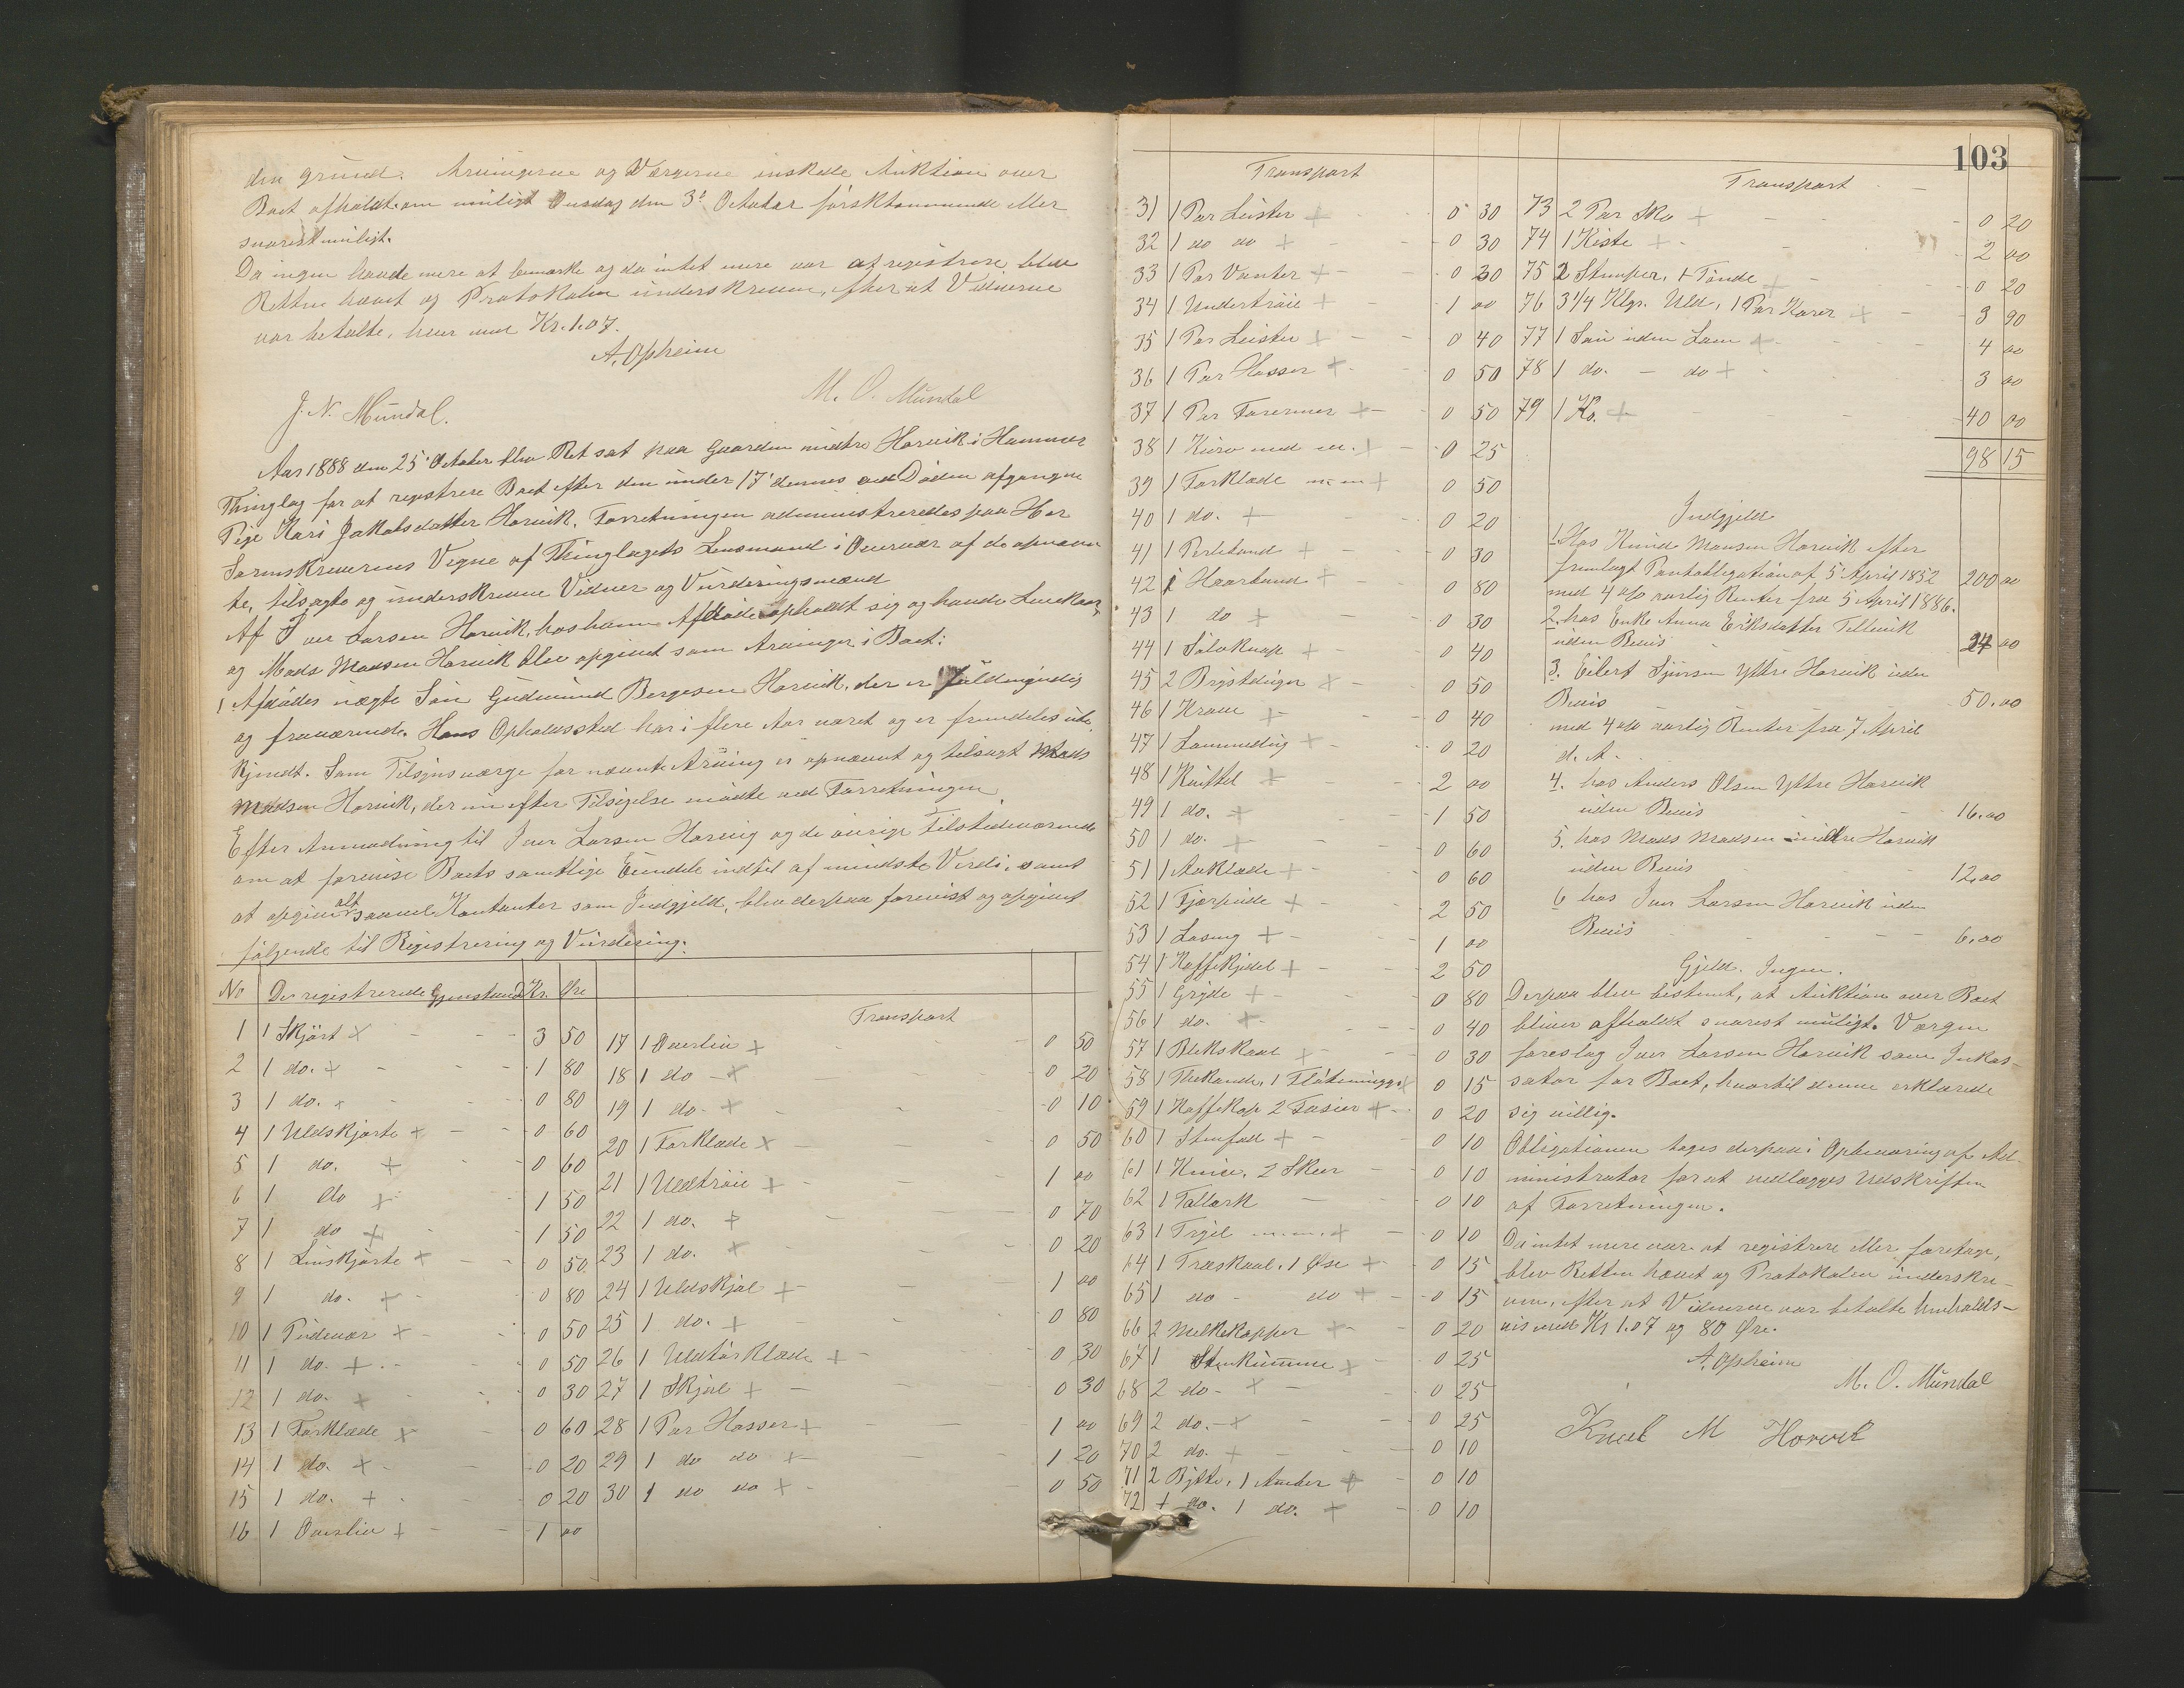 den grund. Arvingerne og Værgerne ønskede Auktion over
Boet afholdt om muligt Onsdag den 3d October førstkommende eller
snarest muligt.
Da ingen havde mere at bemærke og da intet mere var at registrere blev
Retten hævet og Protokolen underskreven, efter at Vidnerne
var betalte, hver med Kr. 1.07.
A. Opheim
J. N. Mundal.
M. O. Mundal
Aar 1888 den 25 October blev Ret sat paa Gaarden midtre Horvik i Hammer
Thinglag for at registrere Boet efter den under 17 dennes ved Døden afgangne
Pige Kari Jakobsdatter Horvik. Forretningen administreredes paa Hr
Sorenskriverens Vegne af Thinglagets Lensmand i Overvær af de opnævn-
te, tilsagte og underskrevne Vidner og Vurderingsmænd
Af Iver Larsen Horvik, hos hvem Afdøde opholdt sig og havde Levekaar,
og Mads Madsen Horvik blev opgivet som Arvinger i Boet:
1 Afdødes uægte Søn Gudmund Bergesen Horvik, der er fuldmyndig
og fraværende. Hans Opholdssted har i flere Aar været og er fremdeles ube-
kjendt. Som Tilsynsværge for nævnte Arving er opnævnt og tilsagt Mads
Madsen Horvik, der nu efter Tilsigelse mødte ved Forretningen
Efter Anmodning til Iver Larsen Horvig og de øvrige Tilstedeværende
om at forevise Boets samtlige Eiendele indtil af mindste Værdi, samt
at opgive alt saavel Kontanter som Indgjeld, blev derpaa forevist og opgivet
følgende til Registrering og Vurdering:
No Den registrerede Gjenstand Kr. Øre
1 1 Skjört + 3 50
2 1 do. + 1 80
3 1 do. + 0 80
4 1 Uldskjorte + 0 60
5 1 do. + 0 60
6 1 do + 1 50
7 1 do + 1 50
8 1 Linskjorte + 0 50
9 1 do. + 0 80
10 1 Pudevar + 0 50
11 1 do. + 0 50
12 1 do. + 0 30
13 1 Forklæde + 0 60
14 1 do. + 0 20
15 1 do. + 0 20
16 1 Overliv + 1 00
Transport
17 1 Overliv + 0 50
18 1 do + 0 20
19 1 do. + 0 10
20 1 Forklæde + 0 50
21 1 Uldtröie + 1 00
22 1 do. + 0 70
23 1 do. + 0 20
24 1 Uldskjal + 1 00
25 1 do. + 0 80
26 1 Uldtörklæde + 0 30
27 1 Skjal + 0 30
28 1 Par Hosser + 1 00
29 1 do do + 1 20
30 1 do do + 0 50
103
Transport
31 1 Par Leister + 0 30
32 1 do do + 0 30
33 1 Par Vanter + 0 30
34 1 Undertröie + 1 00
35 1 Par Leister + 0 40
36 1 Par Hosser + 0 50
37 1 Par Foremer + 0 50
38 1 Kurv med m. + 0 25
39 1 Forklæde m m + 0 50
40 1 do. + 0 20
41 1 Perlebaand + 0 30
42 1 Haarbaand + 0 80
43 1 do + 0 30
44 1 Sölvknap + 0 40
45 2 Brystduger + 0 50
46 1 Krave + 0 40
47 1 Lommedug + 0 20
48 1 Kvittel + 2 00
49 1 do. + 1 50
50 1 do. + 0 60
51 1 Aaklæde + 0 60
52 1 Fjærpude + 2 50
53 1 + 1 00
54 1 Kaffekjedel + 2 50
55 1 Gryde + 0 80
56 1 do. + 0 40
57 1 Blikskaal + 0 30
58 1 Thekande, 1 Flötemugge + 0 15
59 1 Kaffekop 2 + 0 20
60 1 Stenfad + 0 10
61 1 Kniv, 2 Skeer 0 10
62 1 Tallærk 0 10
63 1 Trygl m. m. + 0 10
64 1 Træskaal, 1 Øse + 0 15
65 1 do - do + 0 15
66 2 Melkekopper + 0 20
67 1 Stenkumme + 0 25
68 2 do- + 0 25
69 2 do. + 0 25
70 2 do. + 0 10
71 2 Bytte, 1 Amber + 0 10
72 + do. 1 do. + 0 10
Transport
73 2 Par Sko + 0 20
74 1 Kiste + 2 00
75 2 Stamper, 1 Tönde + 0 20
76 3 1/4 Klgr. Uld, 1 Par Karer + 3 90
77 1 Sau uden Lam + 4 00
78 1 do. - do + 3 00
79 1 Ko. + 40 00
98 15
Indgjeld
1. Hos Knud Monsen Horvik efter
fremlagt Pantobligation af 5 April 1852 200 00
med 4 0/0 aarlig Renter fra 5 April 1886.
2. hos Enke Anna Eriksdatter Tellevik
uden Bevis 24 00
3. Eilert Sjursen Yttre Horvik uden
Bevis 50.00
med 4 0/0 aarlig Renter fra 7 April
d. A.
4. hos Anders Olsen Yttre Horvik
uden Bevis 16.00
5. hos Mads Madsen midtre Horvik
uden Bevis 12.00
6 hos Iver Larsen Horvik uden
Bevis 6.00
Gjeld. Ingen.
Derpaa blev bestemt, at Auktion over Boet
bliver afholdt snarest muligt. Værgen
foreslog Iver Larsen Horvik som Inkas-
sator for Boet, hvortil denne erklærede
sig villig.
Obligationen toges derpaa i Opbevaring af Ad-
ministrator for at vedlægges Udskriften
af Forretningen.
Da intet mere var at registrere eller foretage,
blev Retten hævet og Protokolen underskre-
ven, efter at Vidnerne var betalte henholds-
vis med Kr 1.07 og 80 Øre.
A. Opheim
M. O. Mundal
Knud M Horvik